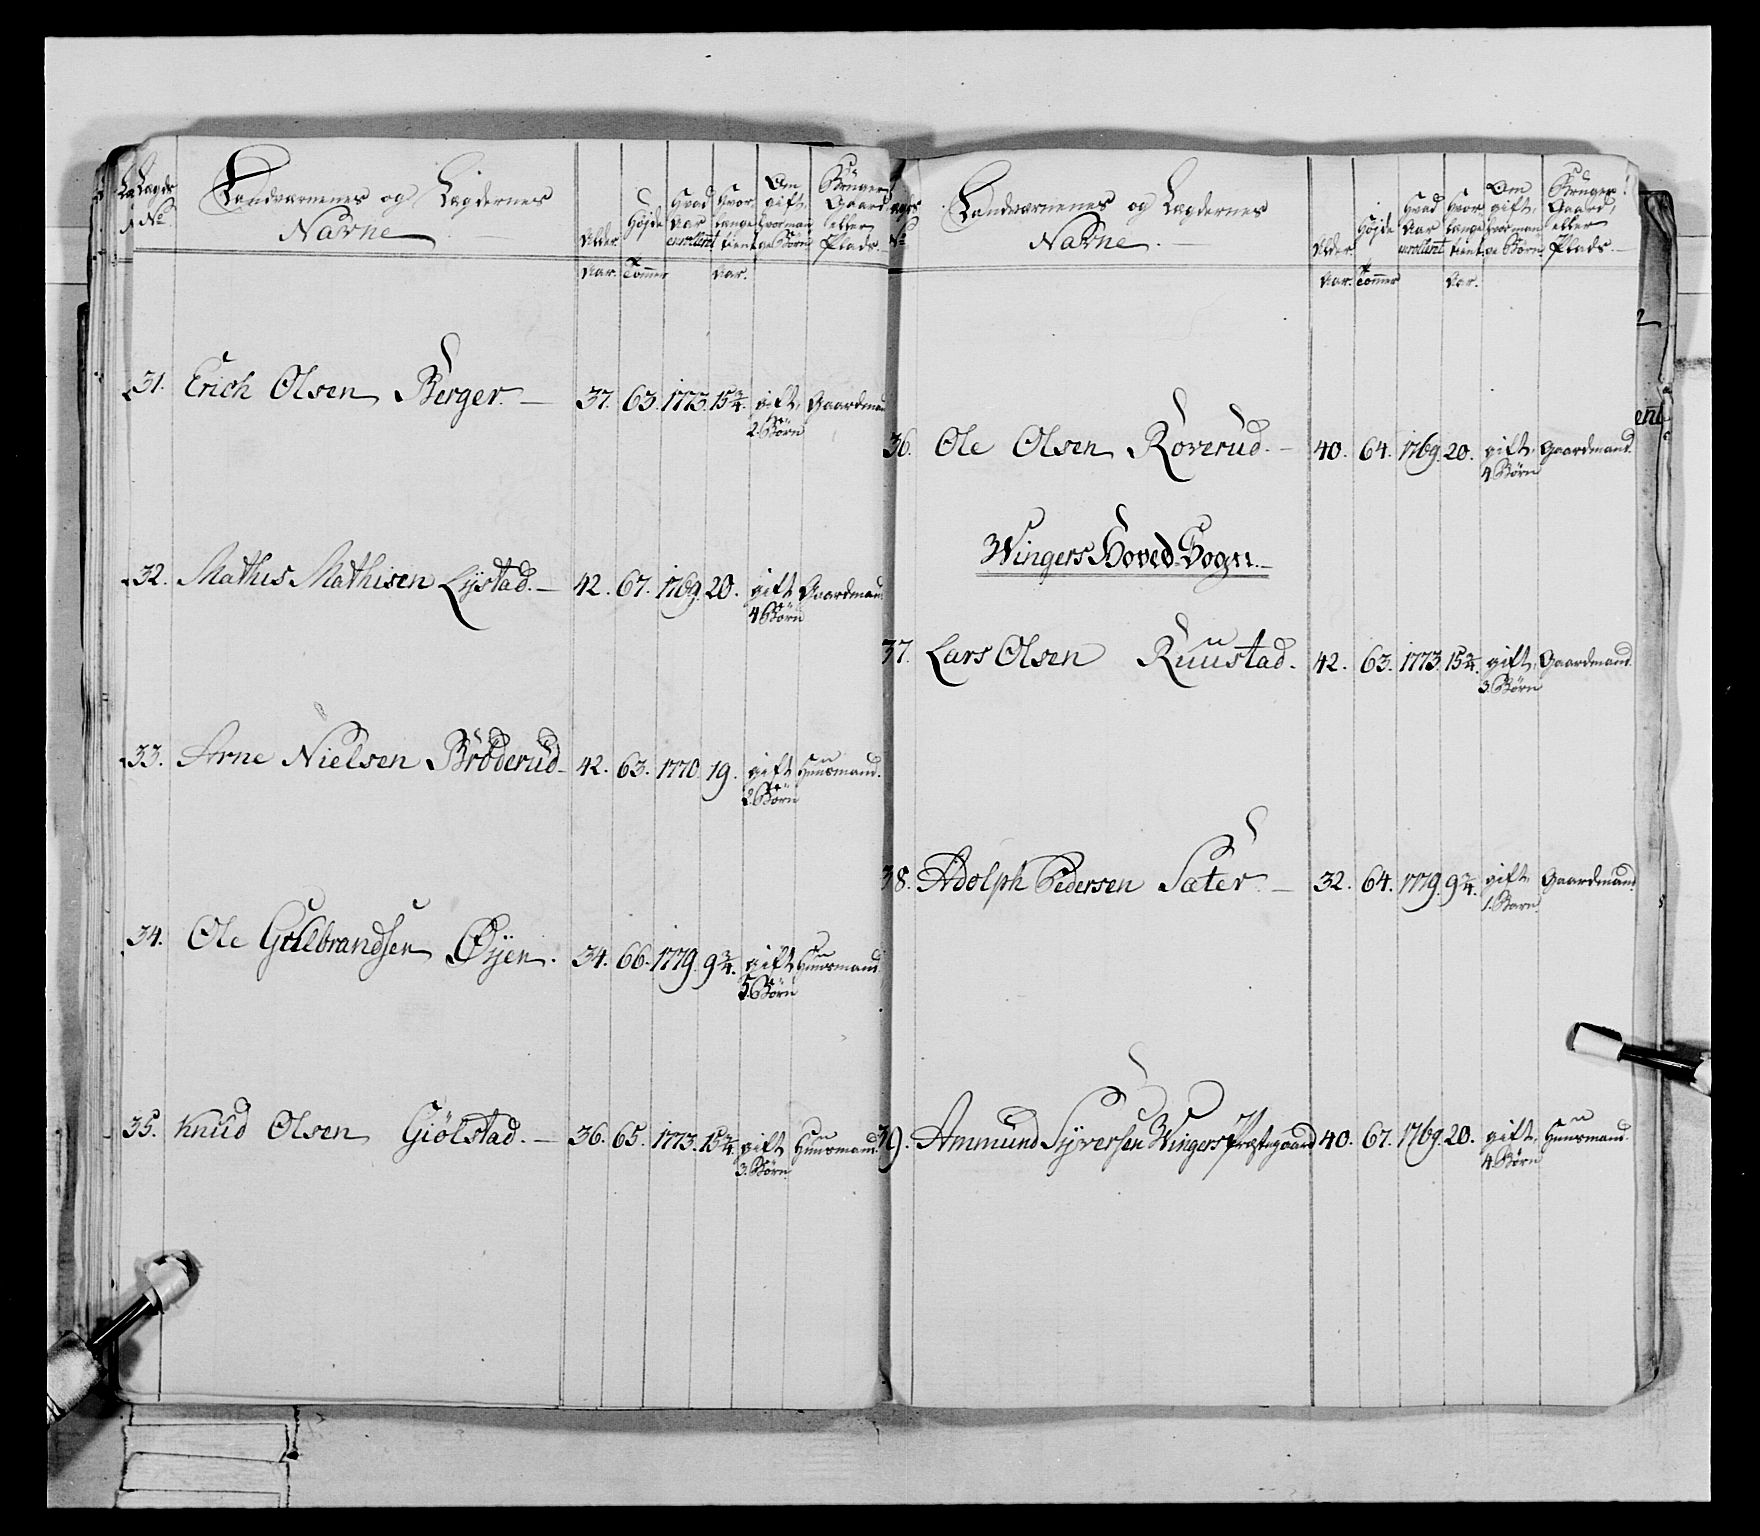 Lagds No
Landværnenes og Lægdernes Navne
Alder Aar.
Højde Tommer
Hvad Aar enrollent
Hvor længe tient Aar.
Om gift, hvor mange Børn
Bruger Gaard eller Plads.
31. Erich Olsen Berger. — 37. 63. 1773. 15 3/4. gift, Gaardmand
2. Børn
32. Mathis Mathisen Lystad. — 42. 67. 1769. 20. gift Gaardmand
4 Børn
33. Arne Nielsen Bröderud 42. 63. 1770. 19. gift Huusmand.
2. Børn
34. Ole Gulbrandsen Øyen. 34. 66. 1779. 9 3/4. gift Huusmand.
5. Børn
35. Knud Olsen Giölstad. — 36. 65. 1773. 15 3/4. gift Huusmand.
3. Børn
Landværnenes og Lægdernes Navne
Alder Aar.
Højde Tommer
Hvad Aar enrollent
Hvor længe tient Aar.
Om gift, hvor mange Børn
Bruger Gaard, eller Plads.
36. Ole Olsen Roverud. — 40. 64. 1769. 20. gift, Gaardmand.
4 Børn
Wingers Hoved-Sogn.
37. Lars Olsen Ruustad. 42. 63. 1773. 15 3/4. gift, Gaardmand.
3. Børn
38. Adolph Pedersen Sæter. — 32. 64. 1779. 9 3/4. gift, Gaardmand
1. Barn
39. Ammund Syversen Wingers Præstegaard 40. 67. 1769. 20. gift, Huusmand.
4. Børn